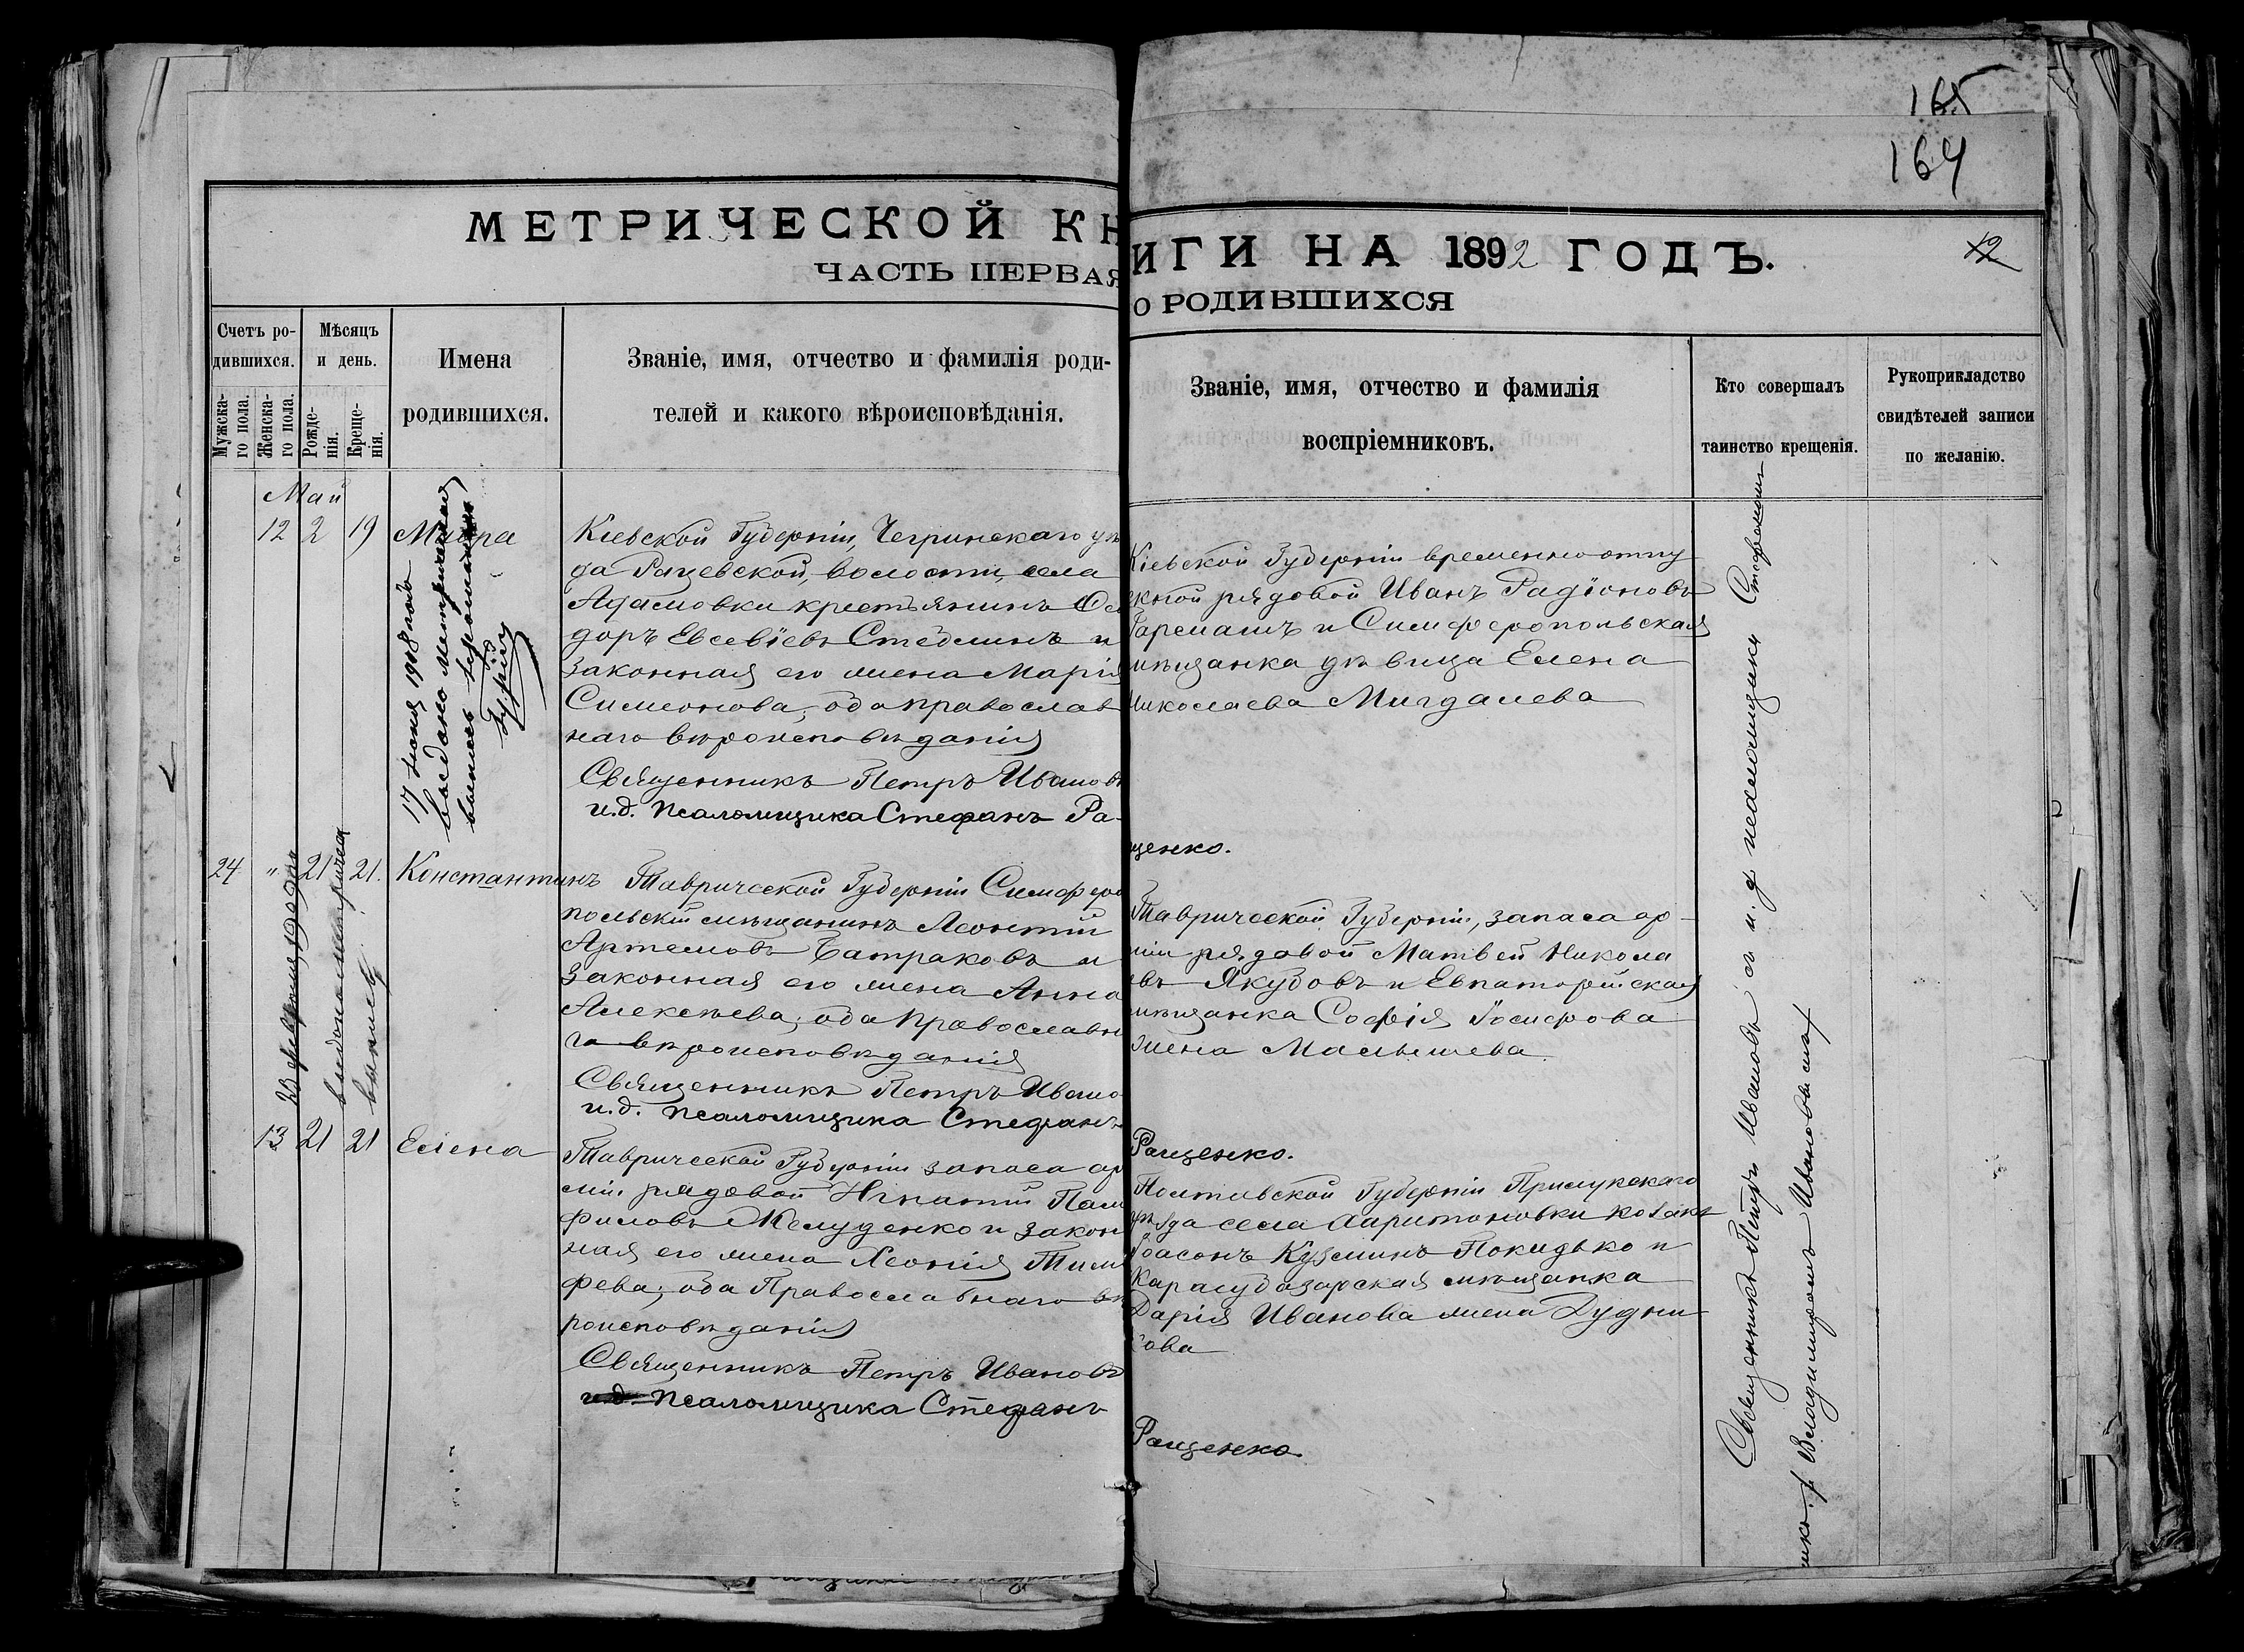 165
164
МЕТРИЧЕСКОЙ КН
ИГИ НА 1892 ГОДЪ.
12
ЧАСТЬ ПЕРВАЯ
О РОДИВШИХСЯ
Счетъ ро-
дившихся.
Мужска-
го пола.
Женска-
го пола.
Мѣсяцъ
и день.
Рожде-
нія.
Креще-
нія.
Имена
родившихся.
Званіе, имя, отчество и фамилія роди-
телей и какого вѣроисповѣданія.
Званіе, имя, отчество и фамилія
воспріемниковъ.
Кто совершалъ
таинство крещенія.
Рукоприкладство
свидѣтелей записи
по желанію.
Май
12 2 19
17 Іюня 1908 года
выдана метрическая
выпись
Кіевской Губерніи, Чегринскаго уѣ
да Рацевской, волости, села
Адамовки крестьянинъ
доръ Евсевіевъ и
законная его жена Марія
Симеонова; оба православ
наго вѣроисповѣданія
Священникъ Петръ Ивановъ
и.д. псаломщика Стефанъ Ра-
Кіевской Губерніи временно отпу
скной рядовой Иванъ Радіоновъ
и Симферопольская
мѣщанка дѣвица Елена
Николаева Мигдалева
щенко.
24 " 21 21. Константинъ
выдана метрическая
выпись
Таврической Губерніи Симферо
польскій мѣщанинъ Леонтій
Артемовъ Батраковъ и
законная его жена Анна
Алексѣева; оба православн
го вѣроисповѣданія
Священникъ Петръ Ивано
и.д. псаломщика Стефанъ
Таврической Губерніи, запаса ар-
міи рядовой Матвей Никола
евъ Якубовъ и Евпаторійская
мѣщанка Софія Іосифова
жена Малышева.
Ращенко.
13 21 21 Елена
Таврической Губерніи запаса ар
міи рядовой Игнатій Пам
филовъ и закон
ная его жена
фева; оба Православнаго вѣ
роисповѣданія
Священникъ Петръ Ивановъ
и.д. псаломщика Стефанъ
Полтавской Губерніи Прилукскаго
уѣзда села Харитоновки козакъ
Іоасонъ Кузминъ Покидько и
Карасубазарская мѣщанка
Дарія Иванова жена Дудни
кова
Ращенко.
Священникъ Петръ Ивановъ съ и. д. псаломщика Стефаномъ
Владимиромъ